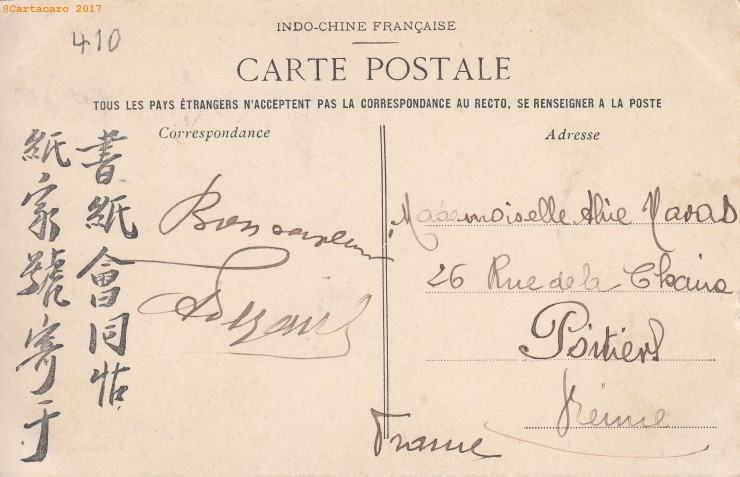 @Cartacaro 2017
410
INDO-CHINE FRANÇAISE
CARTE POSTALE
TOUS LES PAYS ÉTRANGERS N'ACCEPTENT PAS LA CORRESPONDANCE AU RECTO, SE RENSEIGNER A LA POSTE
Correspondance
書紙會同
紙家號寄于
Bons
Adresse
Mademoiselle Alice
26 Rue de la Chaine
Poitiers
Vienne
France